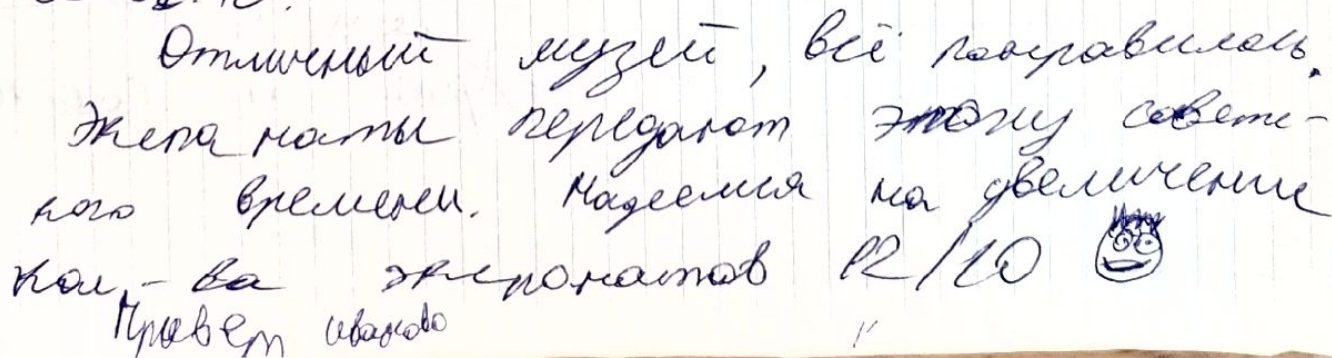 Отличный музей, всё понравилось.
Экспонаты передают эпоху советс-
кого времени. Надеемся на увеличение
кол-ва экспонатов 12/10
Привет Иваново